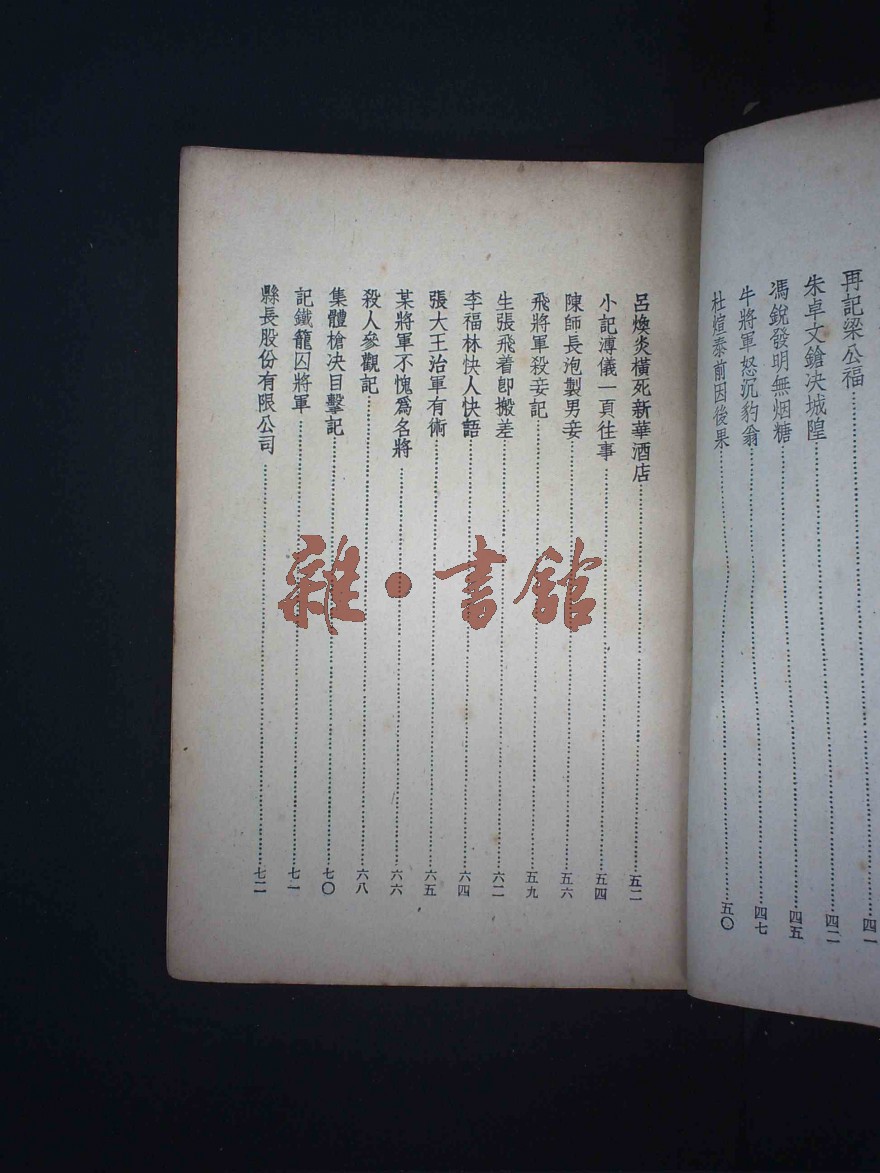 再記梁公福……四一
朱卓文鎗决城隍……四二
馮銳發明無烟糖……四五
牛將軍怒沉豹翁……四七
杜煊泰前因後果……五〇
呂煥炎橫死新華酒店……五二
小記溥儀一頁往事……五四
陳師長泡製男妾……五六
飛將軍殺妾記……五九
生張飛着卽搬差……六二
李福林快人快語……六四
張大王治軍有術……六五
某將軍不愧爲名將……六六
殺人參觀記……六八
集體槍决目擊記……七〇
記鐵籠囚將軍……七一
縣長股份有限公司……七二
雜·書館